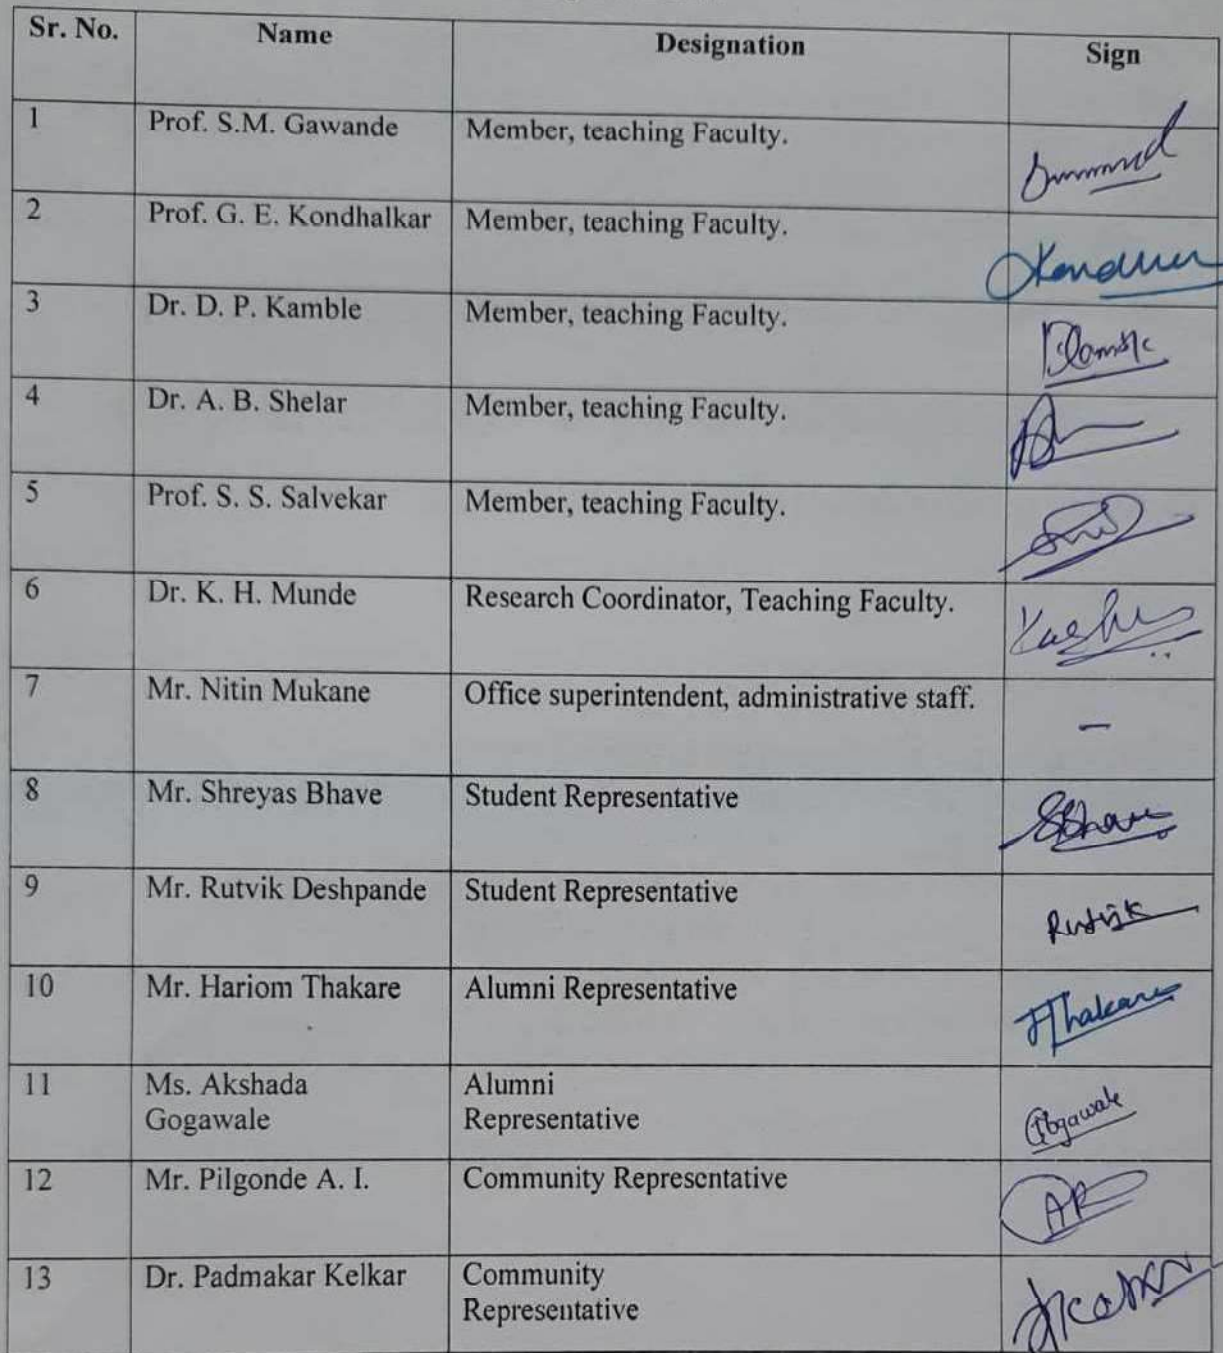 Sr. No. Name Designation Sign
1 Prof. S.M. Gawande Member, teaching Faculty.
2 Prof. G. E. Kondhalkar Member, teaching Faculty.
3 Dr. D. P. Kamble Member, teaching Faculty.
4 Dr. A. B. Shelar Member, teaching Faculty.
5 Prof. S. S. Salvekar Member, teaching Faculty.
6 Dr. K. H. Munde Research Coordinator, Teaching Faculty.
7 Mr. Nitin Mukane Office superintendent, administrative staff. –
8 Mr. Shreyas Bhave Student Representative SBhave
9 Mr. Rutvik Deshpande Student Representative Rutvik
10 Mr. Hariom Thakare Alumni Representative HThakare
11 Ms. Akshada Alumni
Gogawale Representative Gogawale
12 Mr. Pilgonde A. I. Community Representative
13 Dr. Padmakar Kelkar Community
Representative